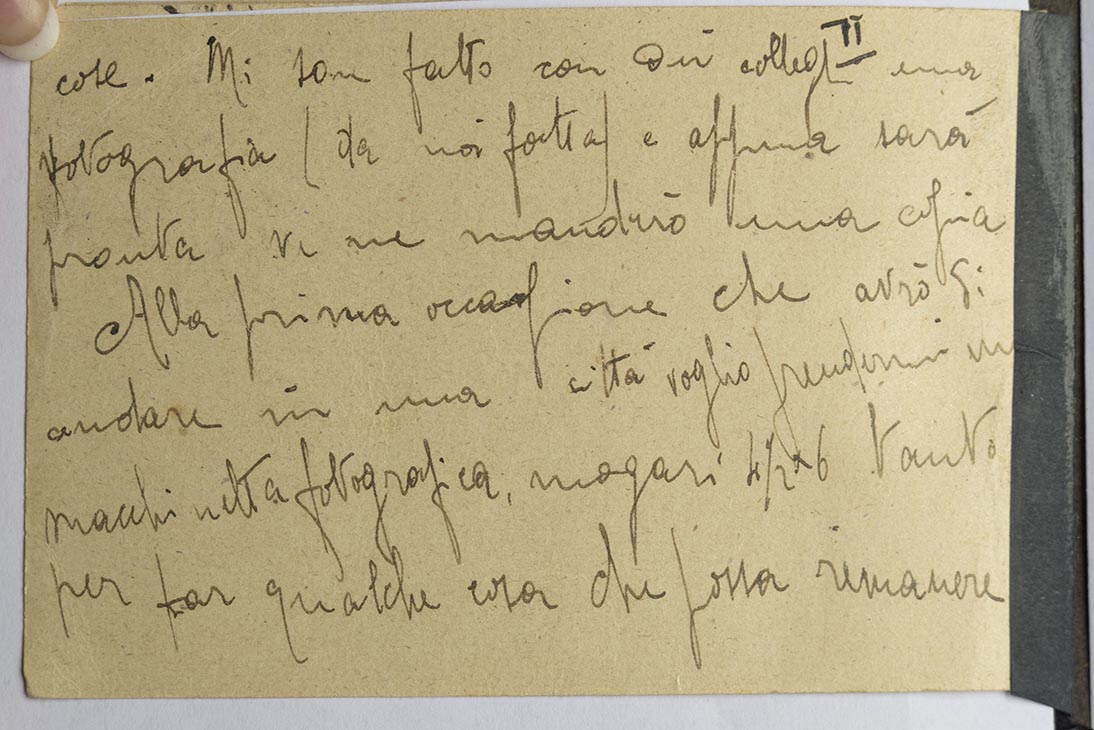 cose. Mi son fatto con dei collegi II una
fotografia (da noi fatta) e appena sarà
pronta ve ne manderò una copia
Alla prima occasione che avrò di
andare in una città voglio prendermi un
macchinetta fotografica, magari 4/2x6 tanto
per far qualche cosa che possa rimanere